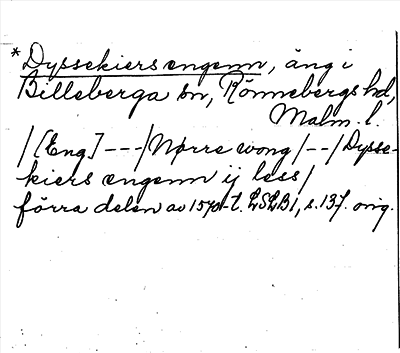 *Dyssekiers engenn, äng i
Billeberga sn, Rönnebergs hd,
Malm. l.
/[Eng] ---/Nørre wong/--/Dysse-
kiers engenn ij less/
förra delen av 1570-t. LSLB1, s. 137. orig.